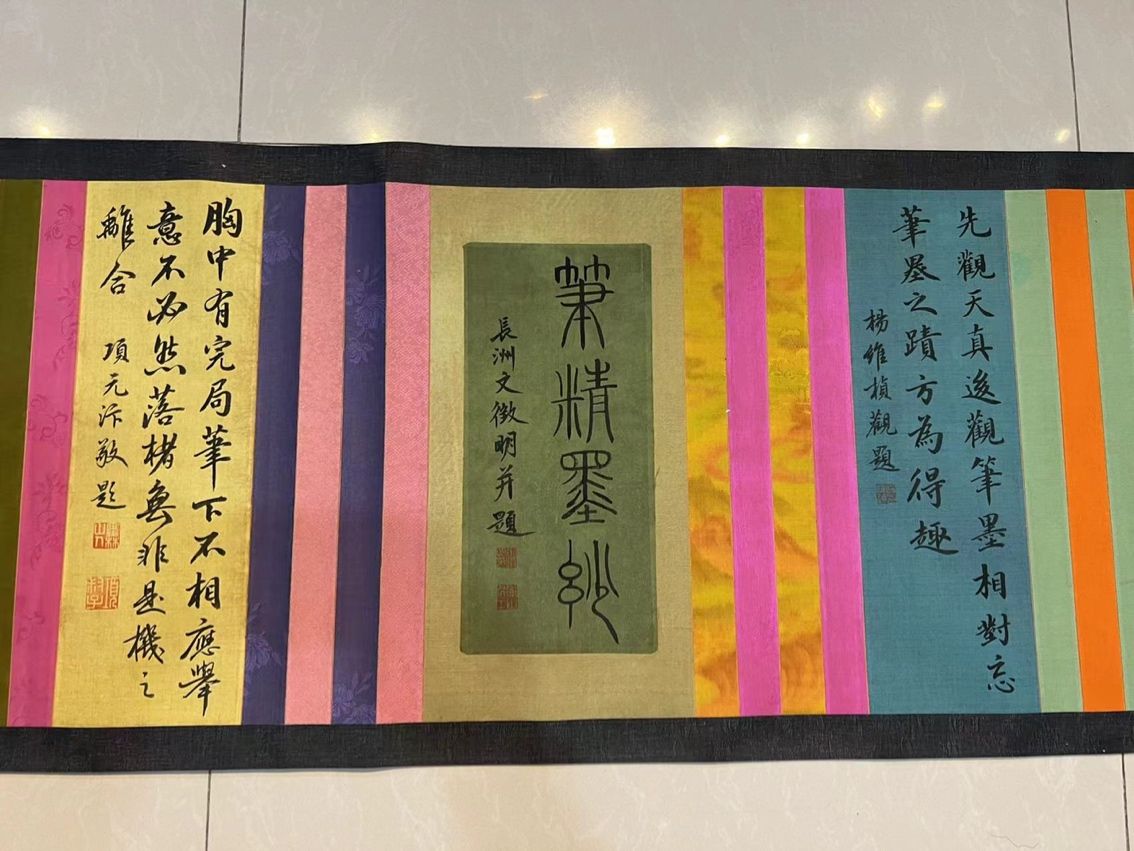 先觀天真後觀筆墨相對忘
筆墨之蹟方為得趣
楊維楨觀題
筆精墨妙
長洲文徵明并題
胸中有完局筆下不相應舉
意不必然落楮無非是機之
離合
項元汴敬題